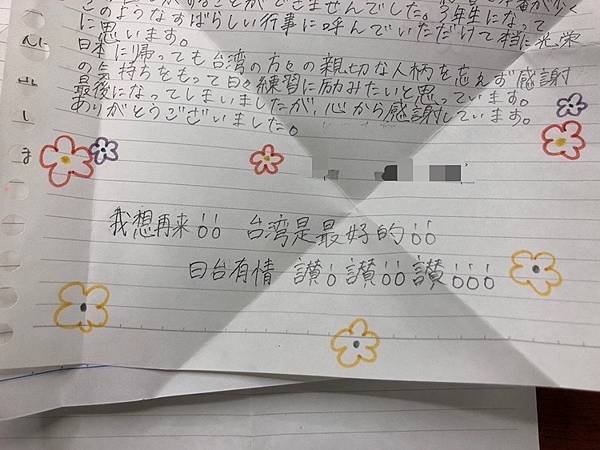 することができませんでした。3年生になって
このようなすばらしい行事に呼んでいただけて本当に光栄
に思います。
日本に帰っても台湾の方々の親切な人柄を忘えず感謝
の気持ちをもって日々練習に励みたいと思っています。
最後になってしまいましたが、心から感謝しています。
ありがとうございました。
我想再来!! 台湾是最好的!!
日台有情 讃! 讃!! 讃!!!